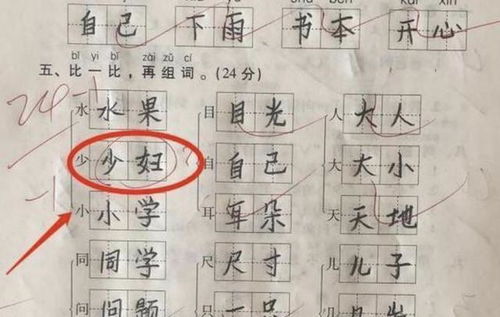 自己 下雨 书本 开心
bǐ yi bǐ zài zǔ cí
五、比一比，再组词。(24分)
24-1
水 水果 目 目光 人 大人
少 少妇 自 自己 大 大小
-1
小 小学 耳 耳朵 天 天地
同 同学 尺 尺寸 儿 儿子
问 问题 只 一只 几